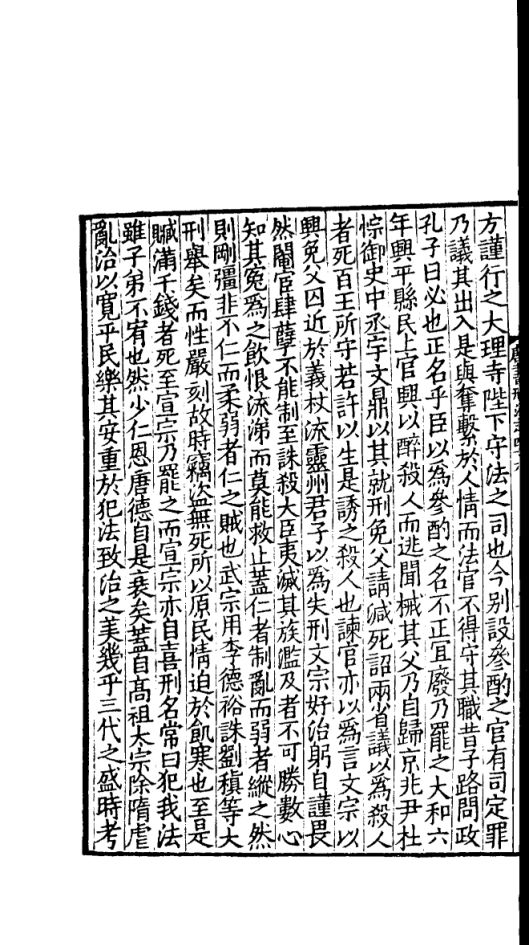 方謹行之大理寺陛下守法之司也今别設參酌之官有司定罪
乃議其出入是與奪繫於人情而法官不得守其職昔子路問政
孔子曰必也正名乎臣以爲參酌之名不正宜廢乃罷之大和六
年興平縣民上官興以醉殺人而逃聞械其父乃自歸京兆尹杜
悰御史中丞宇文鼎以其就刑免父請減死詔兩省議以爲殺人
者死百王所守若許以生是誘之殺人也諫官亦以爲言文宗以
興免父囚近於義杖流靈州君子以爲失刑文宗好治躬自謹畏
然閹宦肆孽不能制至誅殺大臣夷滅其族濫及者不可勝數心
知其寃爲之飲恨流涕而莫能救止蓋仁者制亂而弱者縱之然
則剛彊非不仁而柔弱者仁之賊也武宗用李德裕誅劉稹等大
刑舉矣而性嚴刻故時竊盜無死所以原民情迫於飢寒也至是
贓滿千錢者死至宣宗乃罷之而宣宗亦自喜刑名常曰犯我法
雖子弟不宥也然少仁恩唐德自是衰矣蓋自高祖太宗除隋虐
亂治以寬平民樂其安重於犯法致治之美幾乎三代之盛時考